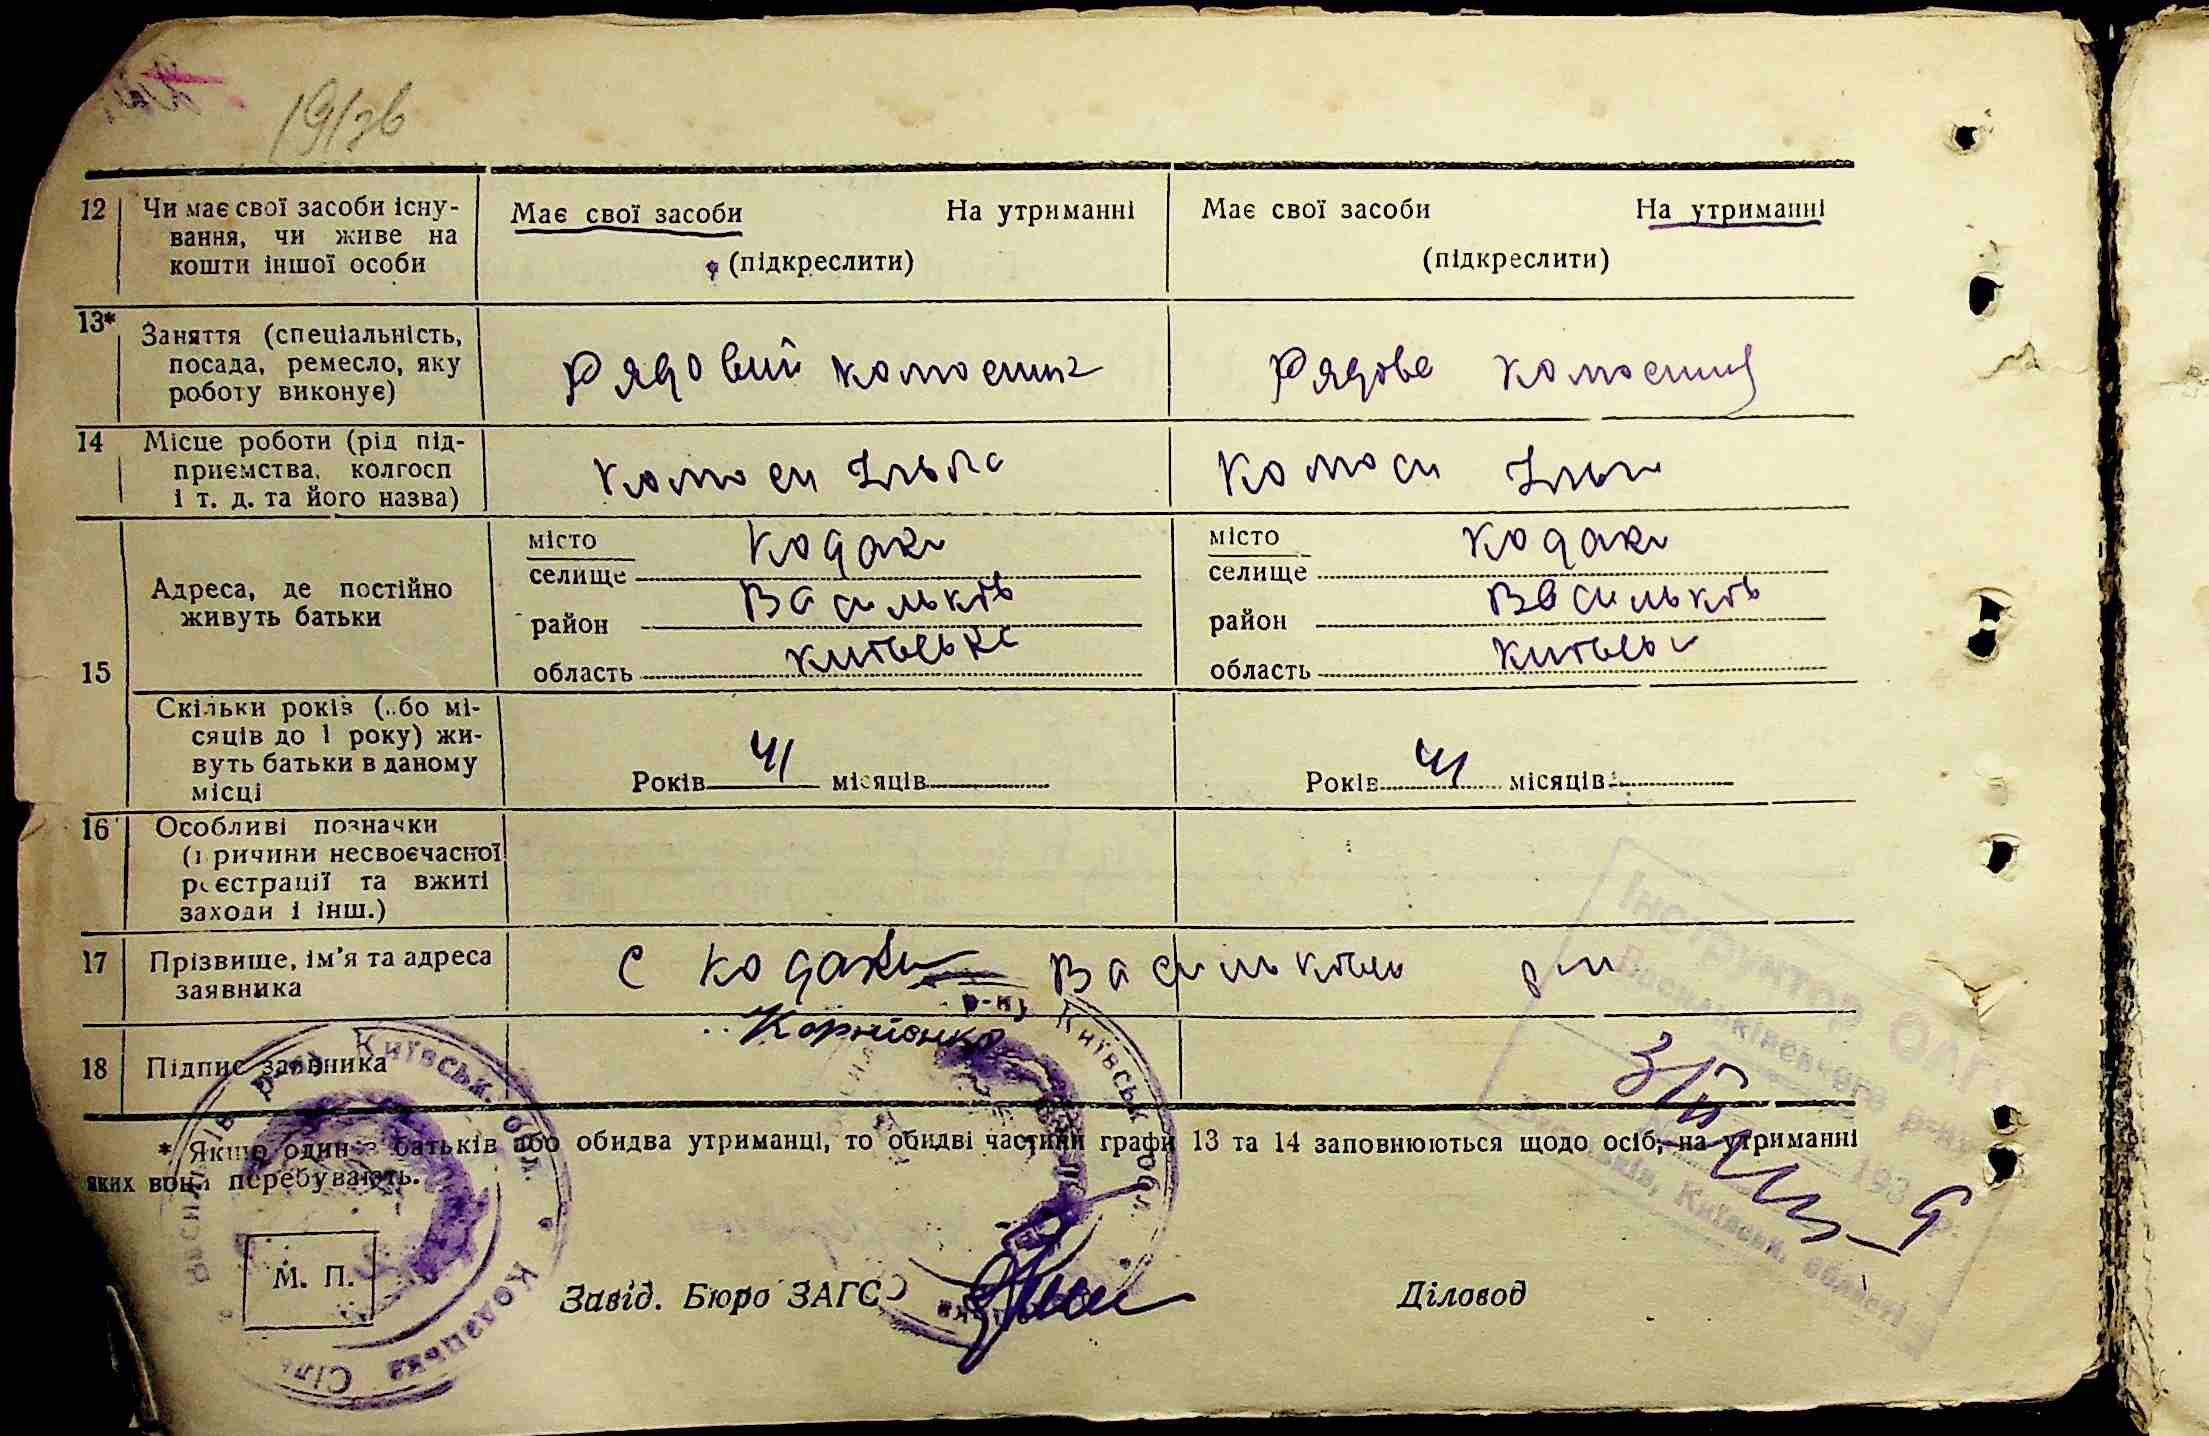 19/зв
12 Чи має свої засоби існу-
вання, чи живе на
кошти іншої особи
Має свої засоби На утриманні
(підкреслити)
Має свої засоби На утриманні
(підкреслити)
13* Заняття (спеціальність,
посада, ремесло, яку
роботу виконує)
Рядовий
Рядова
14 Місце роботи (рід під-
приємства, колгосп
і т. д. та його назва)
15 Адреса, де постійно
живуть батьки
місто
селище Кодаки
район Васильків
область Київська
місто
селище Кодаки
район Васильків
область
Скільки років (або мі-
сяців до 1 року) жи-
вуть батьки в даному
місці
Років 41 місяців
Років 41 місяців
16 Особливі позначки
(причини несвоєчасної
реєстрації та вжиті
заходи і інш.)
17 Прізвище, ім'я та адреса
заявника
с Кодаки
18 Підпис заявника
Корнієнко
* Якщо один з батьків або обидва утриманці, то обидві частини графи 13 та 14 заповнюються щодо осіб, на утриманні
яких вони перебувають.
М. П.
Завід. Бюро ЗАГС
Діловод
р-ну Київськ. обл.
Кодацька Сіль
р-ну Київськ. обл.
Інструктор ОАГС
Васильківського р-ну
193 9 р.
Київськ. області